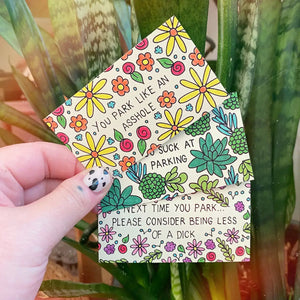 YOU PARK LIKE AN
ASSHOLE
SUCK AT
PARKING
NEXT TIME YOU PARK...
PLEASE CONSIDER BEING LESS
OF A DICK